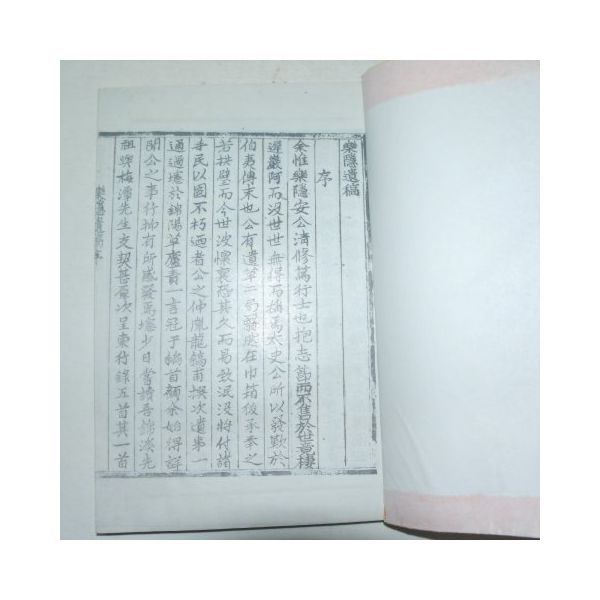 樂隱遺稿
序
余惟樂隱安公淸修篤行士也抱志節而不售於世竟棲
遲巖阿而沒世世無得而稱焉太史公所以發歎於
伯夷傳末也公有遺草一局發在巾箱後承奉之
若拱璧而今世波懷襄恐其久而易致泯沒將付諸
手民以圖不朽迺者公之仲胤龍鎬甫撰次遺事一
通過墦於錦陽草廬責一言冠于編首顧余始得詳
聞公之事行抑有所感發焉少日嘗讀吾錦淡先
祖與梅潭先生交契甚厚次呈東行錄五首其一首
樂隱遺稿序